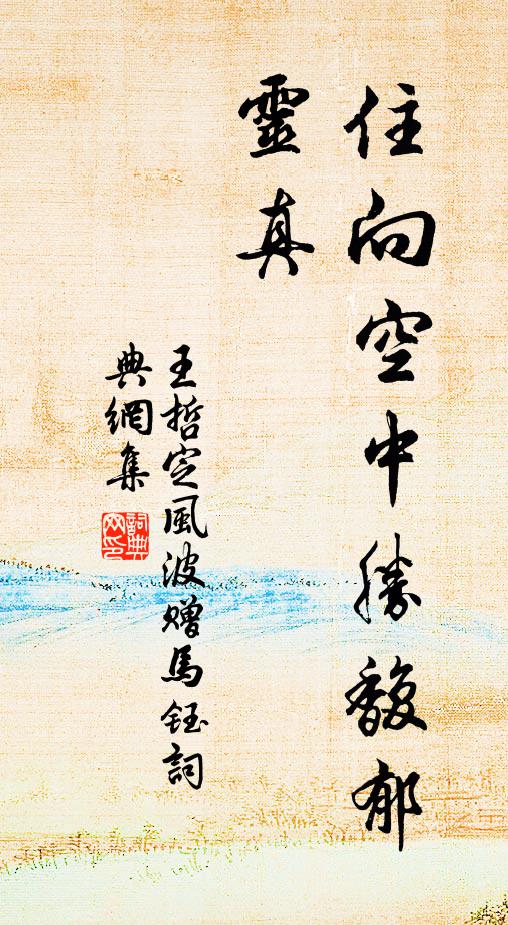 住向空中勝馥郁
靈真
王哲定風波贈馬鈺詞
典網集
詞典網印